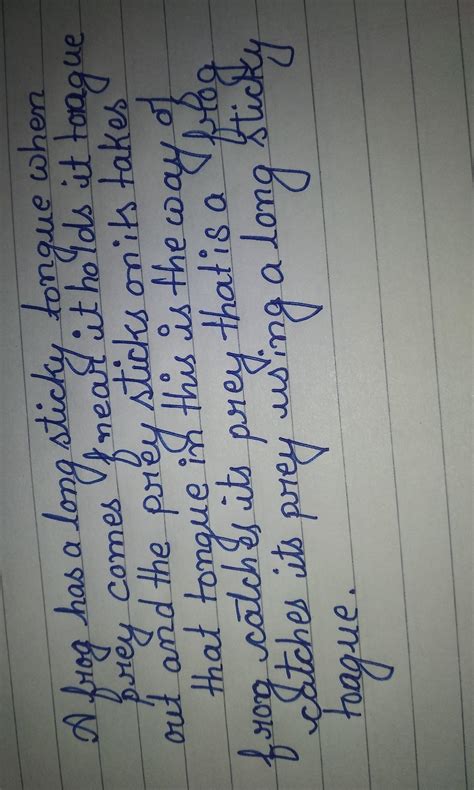 A frog has a long sticky tongue when
prey comes near it holds it toague
out and the prey sticks on its takes
that tongue in this is the way of
frog catches its prey that is a frog
catches its prey using a long sticky
toague.